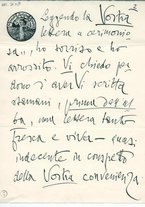 Leggendo la Vostra
lettera a cerimonio
sa, ho sorriso e ho
arrossito. Vi chiedo per
dono d'aver Vi scritta
stamani, prima dell'al
ba, una lettera tanto
fresca e viva – quasi
indecente in cospetto
della Vostra convenienza